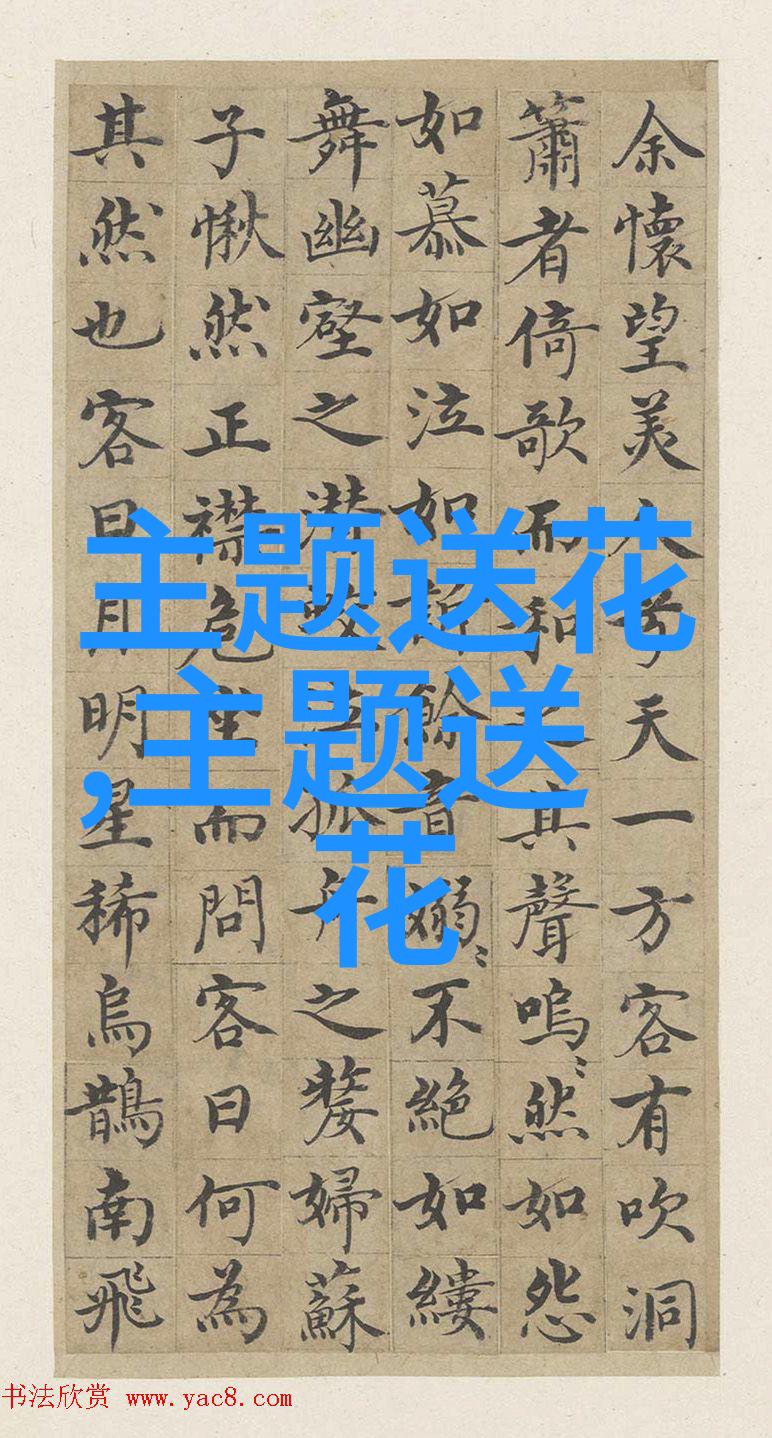 余懷望美人兮天一方客有吹洞
簫者倚歌而和之其聲嗚〻然如怨
如慕如泣如訴餘音嫋〻不絕如縷
舞幽壑之潛蛟泣孤舟之嫠婦蘇
子愀然正襟危坐而問客曰何為
其然也客曰月明星稀烏鵲南飛
主题送花
,主题送
花
书法欣赏 www.yac8.com